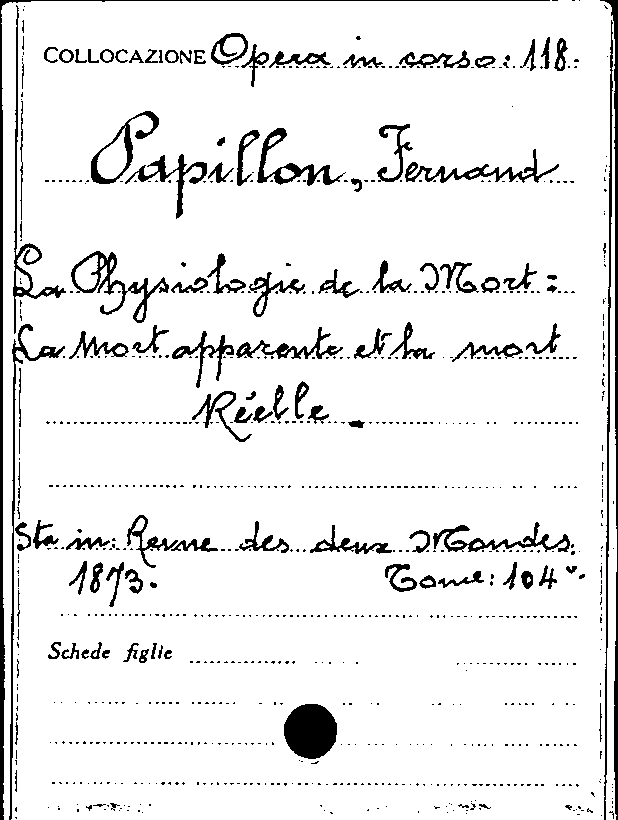 COLLOCAZIONE Opera in corso: 118.
Papillon, Fernand
La Physiologie de la Mort:
La Mort apparente et la mort
Réelle.
Sta in: Revue des deux Mondes.
1873. Tome: 104º.
Schede figlie